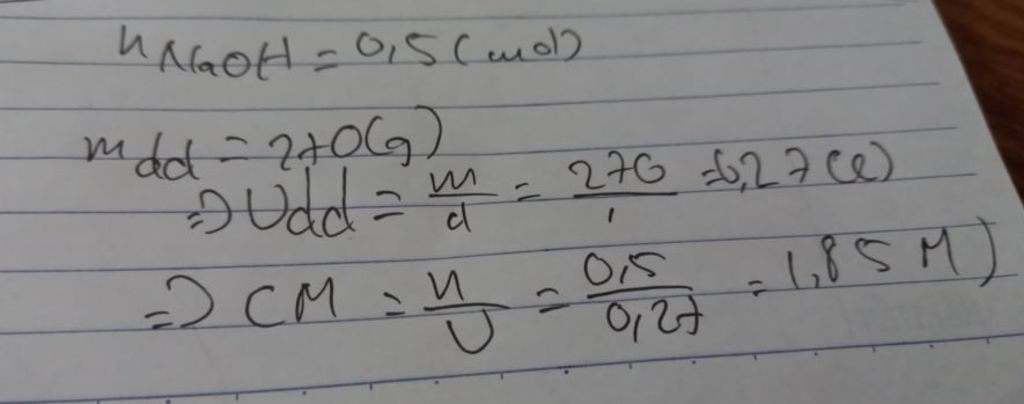 nNaOH = 0,5 (mol)
mdd = 270(g)
=> Vdd = m/d = 270/1 = 0,27 (l)
=> CM = n/V = 0,5/0,27 = 1,85 M)